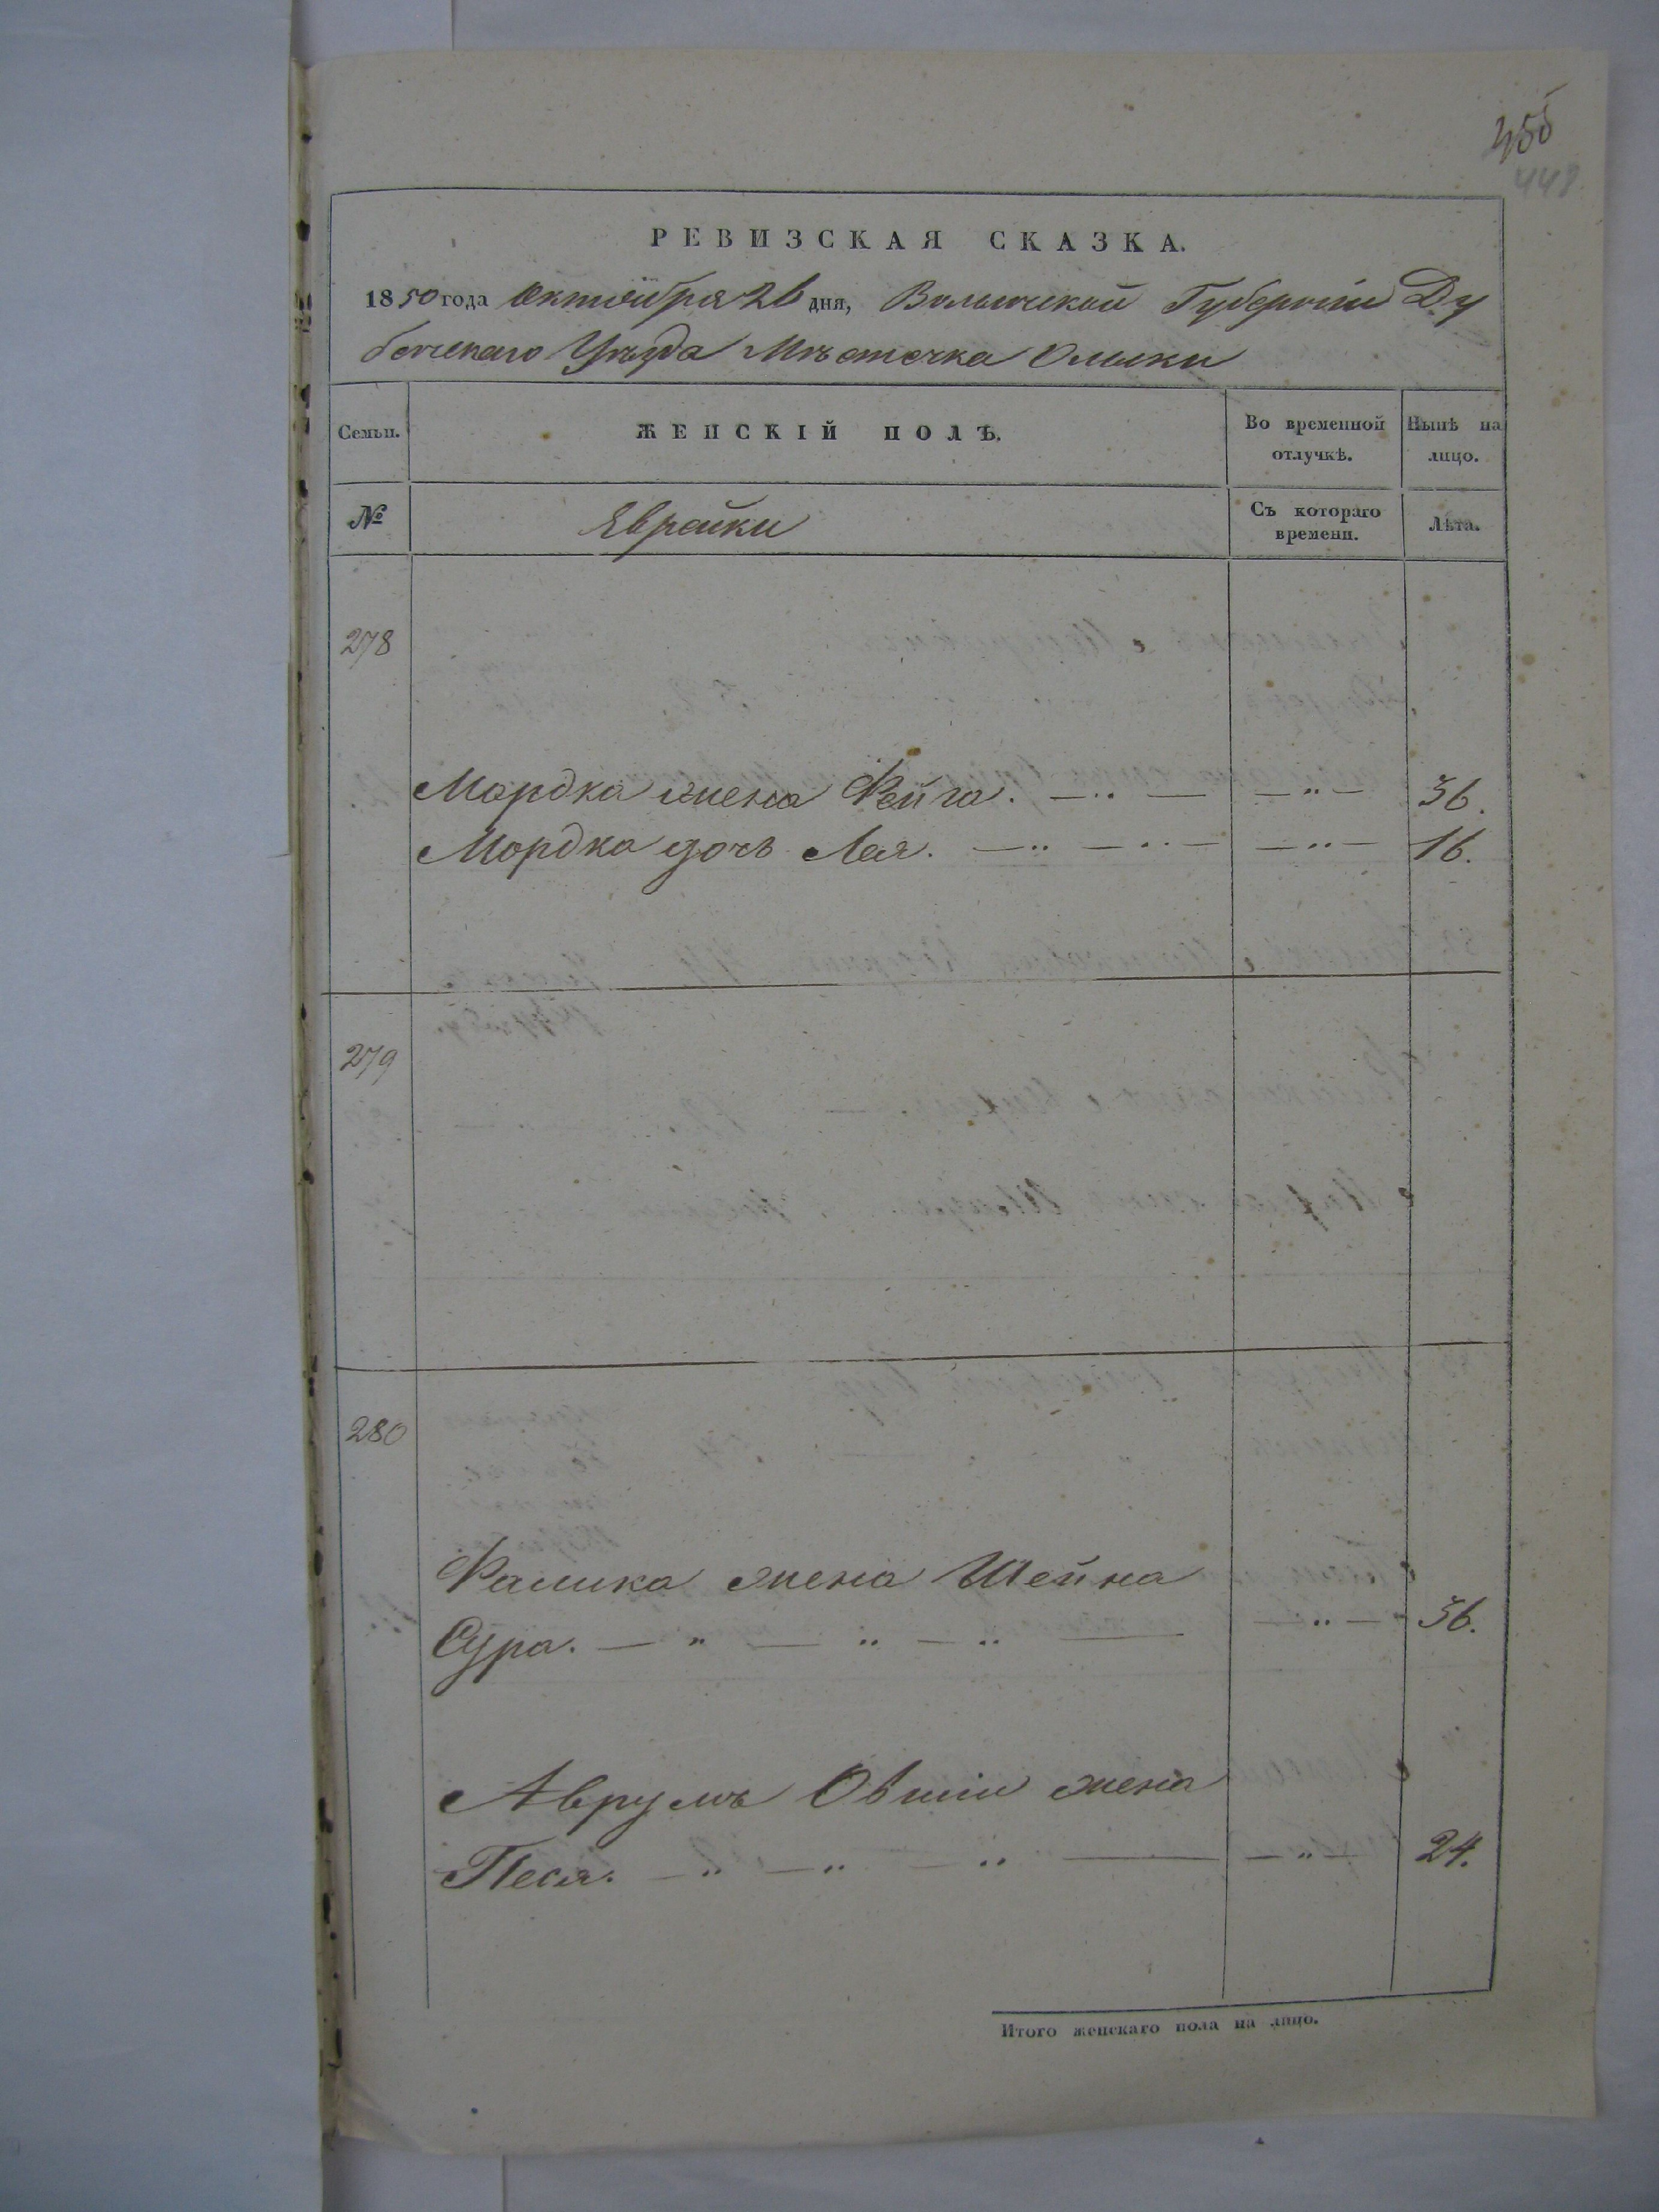 455
448
РЕВИЗСКАЯ СКАЗКА.
1850 года Октября 26 дня, Волынской Губерніи Ду
бенскаго Уѣзда Мѣстечка Олыки
Семьи. ЖЕНСКІЙ ПОЛЪ. Во временной отлучкѣ. Нынѣ на лицо.
№ Еврейки Съ котораго времени. Лѣта.
278
Мордка жена Фейга. — „ — — „ — 36.
Мордка дочь Лея. — „ — „ — — „ — 16.
279
280
Фалика жена Шейна
Сура. — „ — „ — „ — — „ — 36.
Аврумъ Овшіи жена
Песя. — „ — „ — „ — — „ — 24.
Итого женскаго пола на лицо.